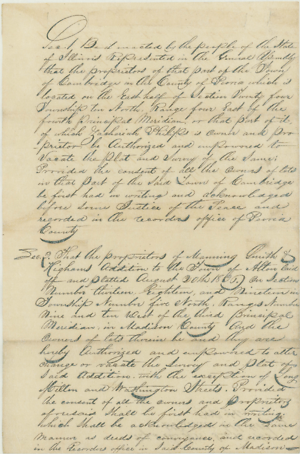 Sec. 1 Be it enacted by the people of the State
of Illinois Represented in the General Assembly
that the proprietors of that part of the Town
of Cambridge in the County of Peoria which is
located on the East half of Section Twenty four
Township ten North Range four East of the
fourth Principal Meridian or that part of it
of which Zachariah Philips is owner and pro-
prietor be Authorized and empowered to
Vacate the Plat and Survey of the Same;
Provided the consent of all the owners of lots
in that Part of the Said Town of Cambridge
be first had in writing and acknowledged
before Some Justice of the Peace and
recorded in the recorders office of Peoria
County
Sec. 2 That the proprietors of Manning Smith &
Highams Addition to the Town of Alton laid
off and Platted August 30th on Section
Number thirteen Eighteen and
Township Number five North, Ranges Number
Nine and ten West of the third Principal
Meridian, in Madison County And the
Owners of lots therein be and they are
hereby Authorized and empowered to alter
change or vacate the survey and Plat of
Said Addition with the exception of
Milton and Washington Streets: Provided
the consent of all the owners and Proprietors
aforesaid Shall be first had in writing
which Shall be acknowledged in the Same
Manner as deeds of conveyance, and recorded
in the Recorders office in Said County of Madison